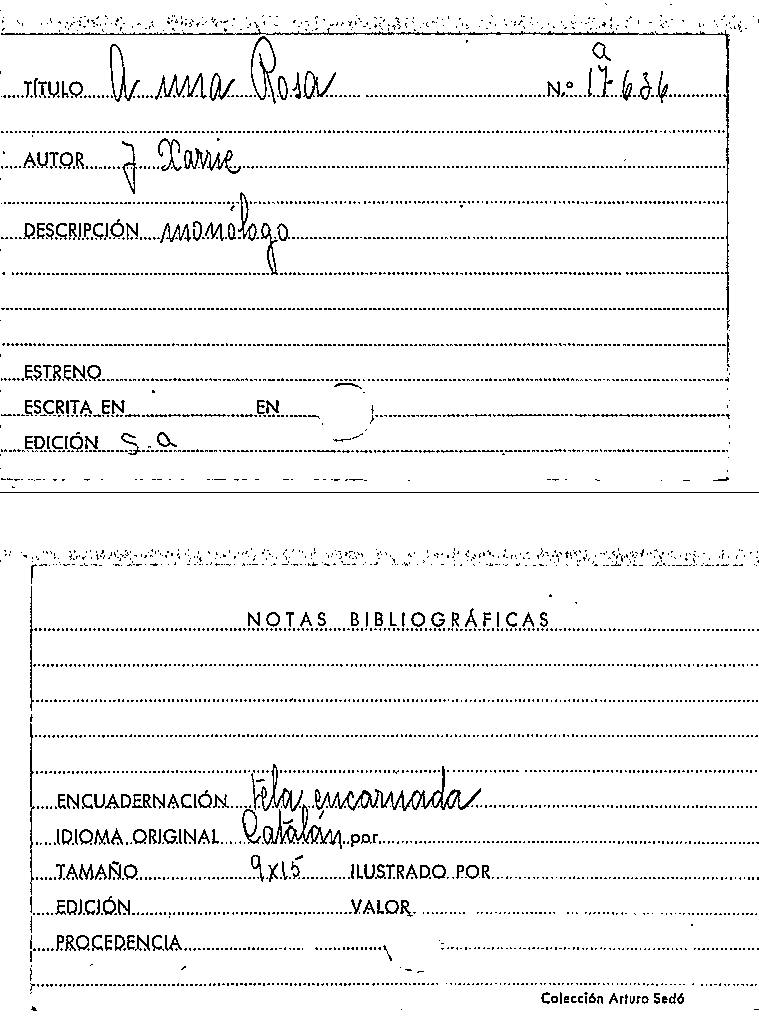 a
TÍTULO A una Rosa N.º 17-636
AUTOR J Xarrie
DESCRIPCIÓN monólogo
ESTRENO
ESCRITA EN EN
EDICIÓN S.a
NOTAS BIBLIOGRÁFICAS
ENCUADERNACIÓN Tela encarnada
IDIOMA ORIGINAL Catalán por
TAMAÑO 9x15 ILUSTRADO POR
EDICIÓN VALOR
PROCEDENCIA
Colección Arturo Sedó